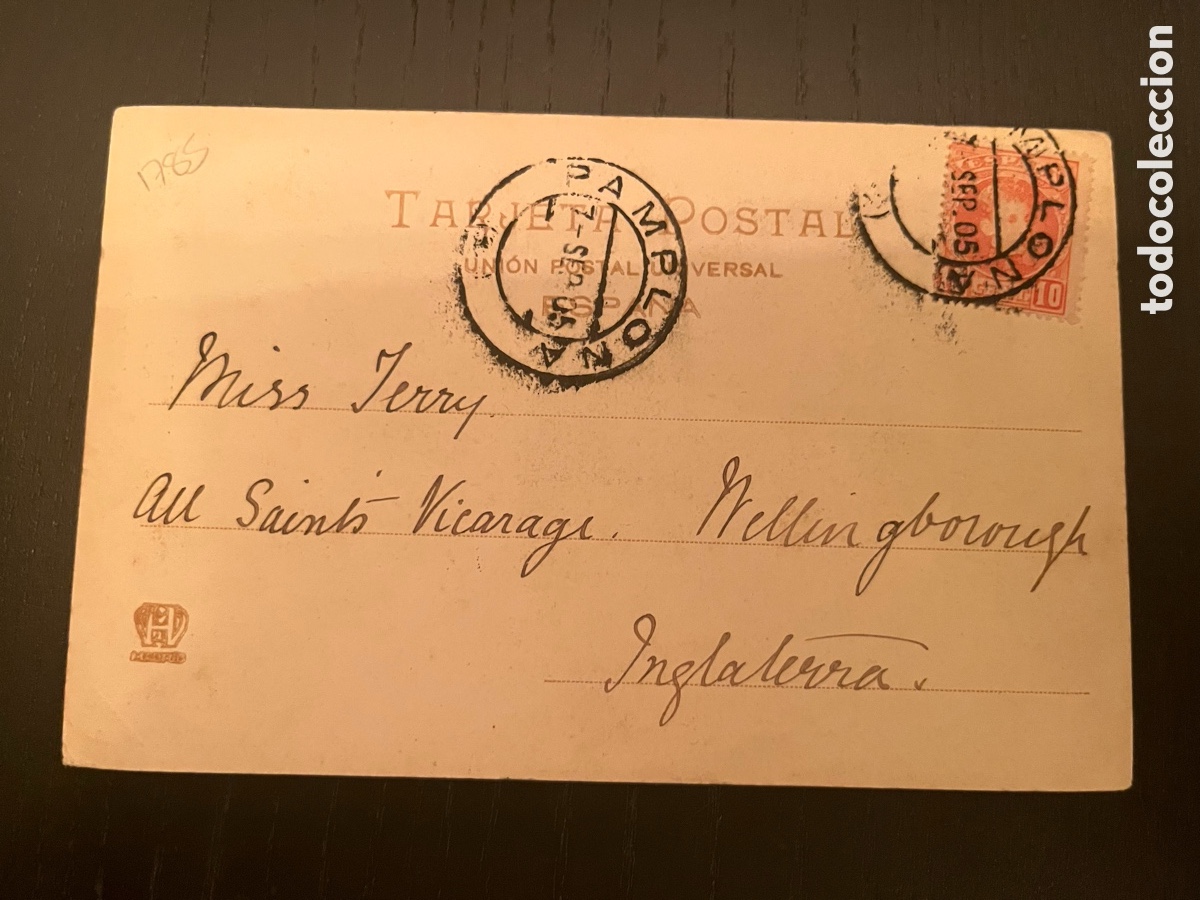 1785
TARJETA POSTAL
UNIÓN POSTAL UNIVERSAL
ESPAÑA
PAMPLONA
7-SEP.05
PAMPLONA
-SEP.05
10
Miss Terry.
All Saints Vicarage. Wellingborough
Inglaterra.
H
todocoleccion